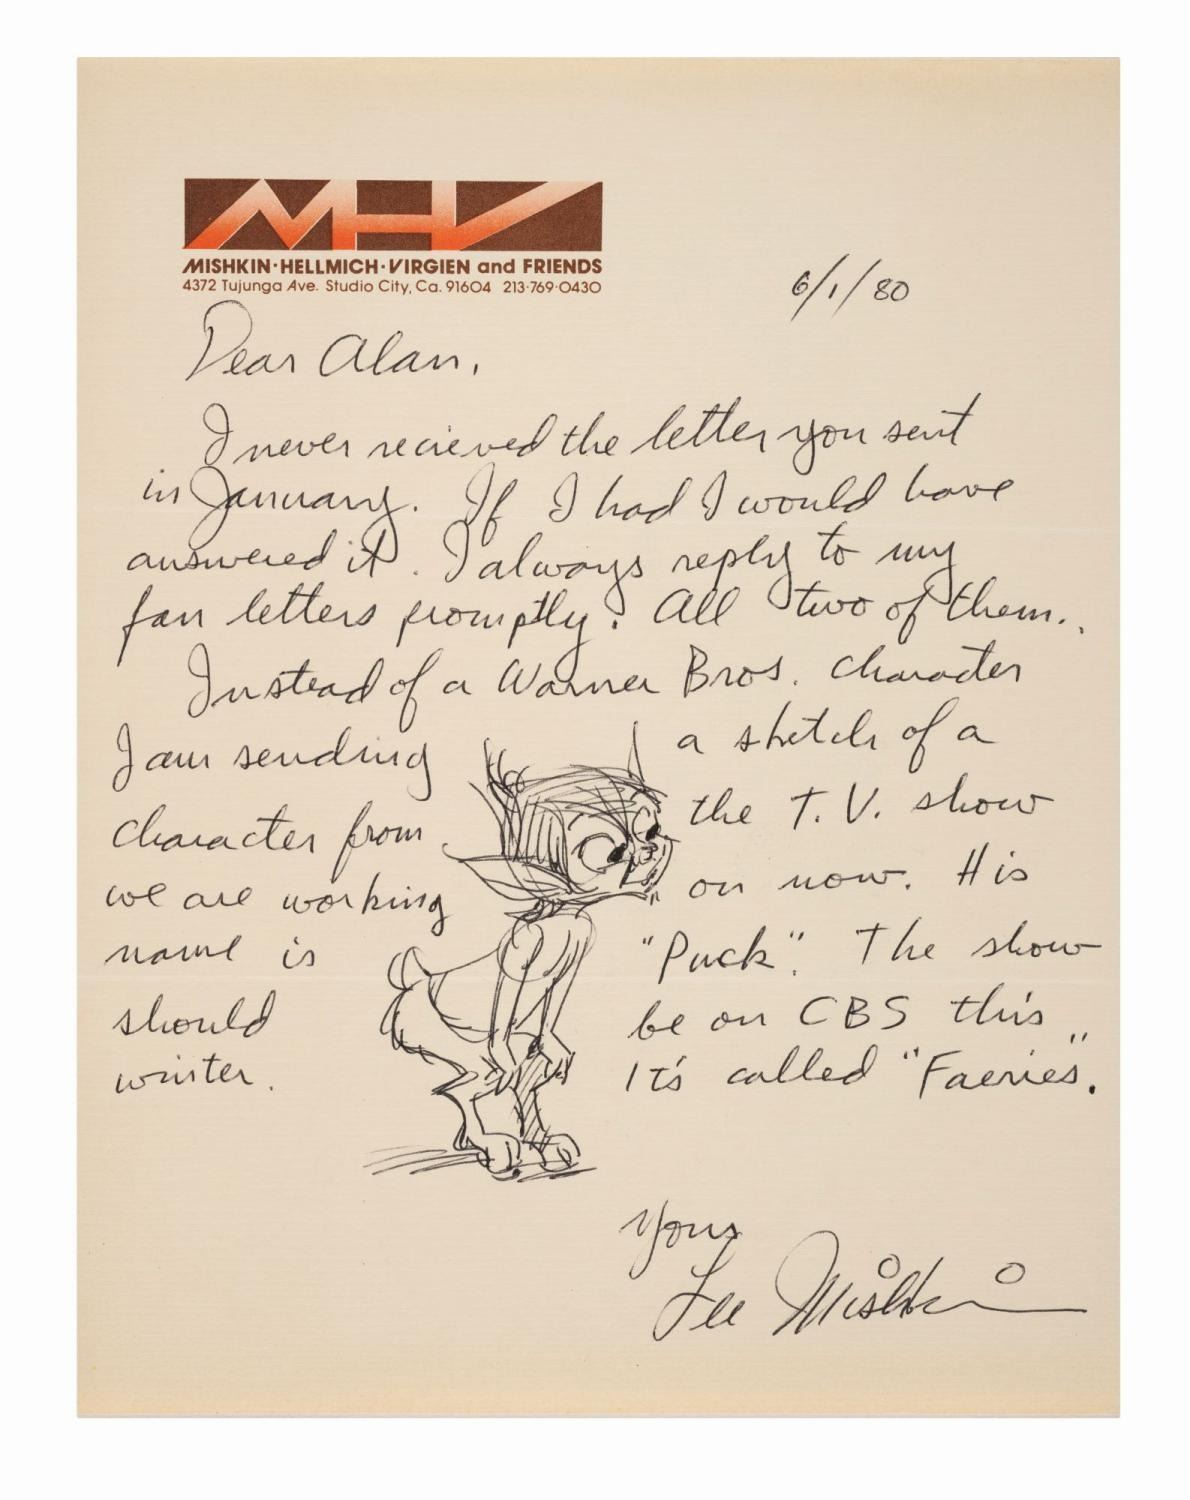 MHV
MISHKIN·HELLMICH·VIRGIEN and FRIENDS
4372 Tujunga Ave. Studio City, Ca. 91604 213·769·0430
6/1/80
Dear Alan,
I never recieved the letter you sent
in January. If I had I would have
answered it. I always reply to my
fan letters promptly. All two of them.
Instead of a Warner Bros. character
I am sending a sketch of a
character from the T.V. show
we are working on now. His
name is "Puck". The show
should be on CBS this
winter. It's called "Faeries".
Yours
Lee Mishkin